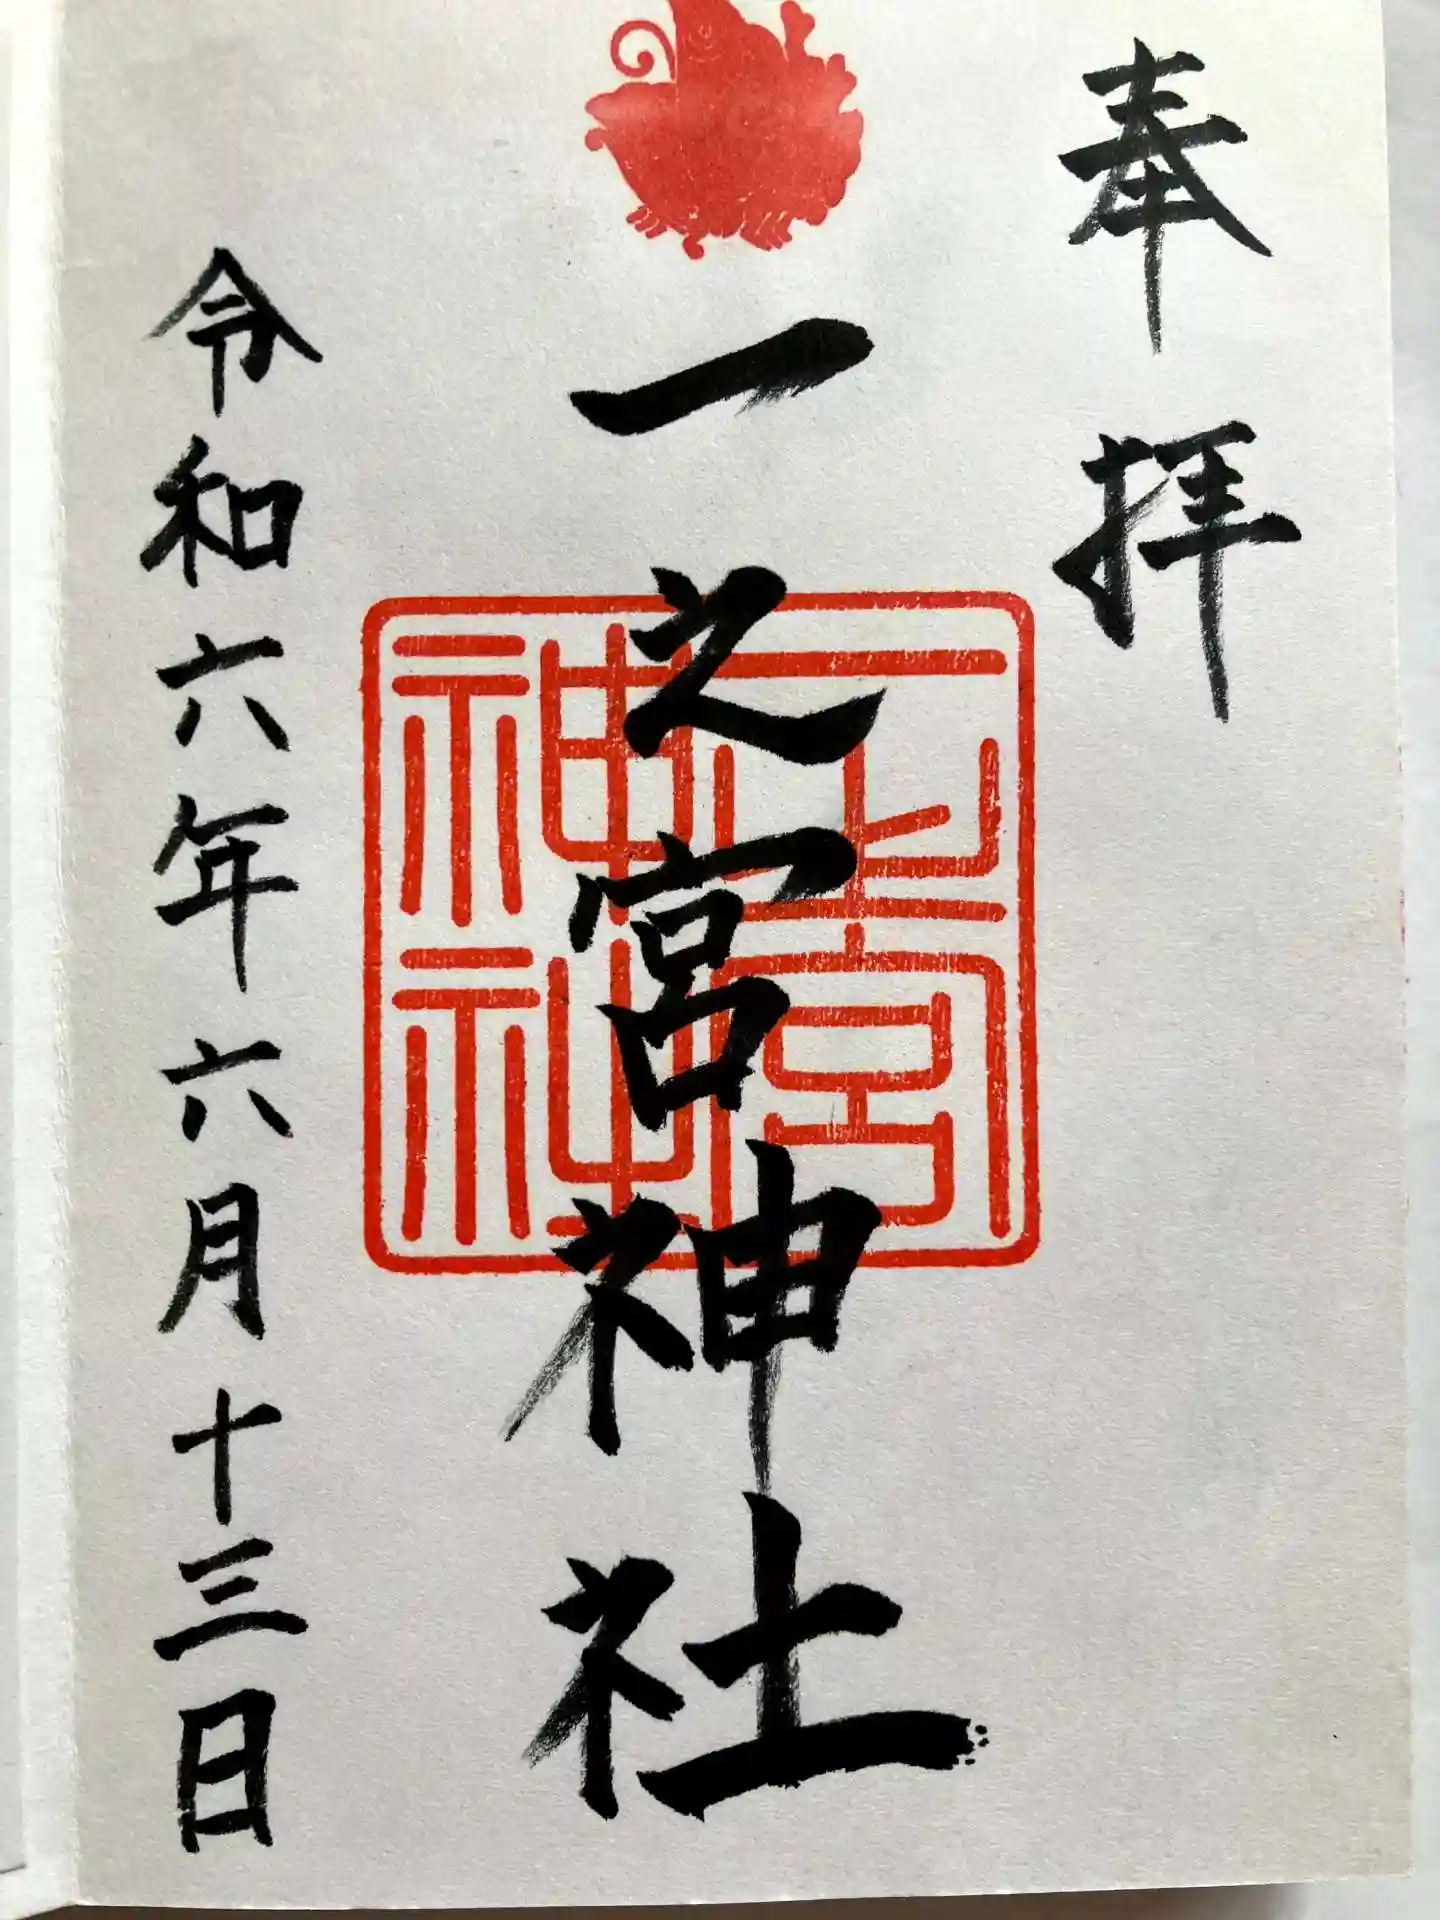 奉拝
一之宮神社
一之宮神社
令和六年六月十三日